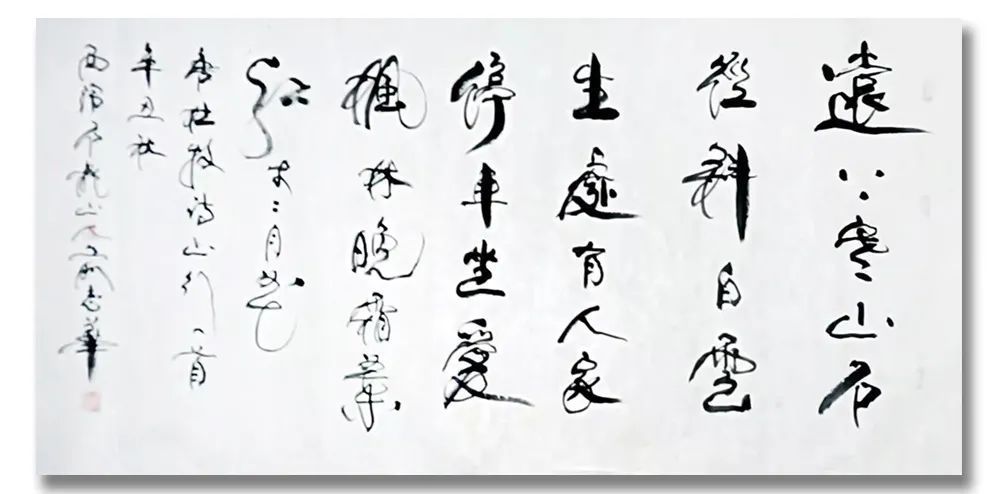 遠上寒山石
徑斜白雲
生處有人家
停車坐愛
楓林晚霜葉
紅於二月花
杜牧诗山行一首
辛丑秋
山人志華